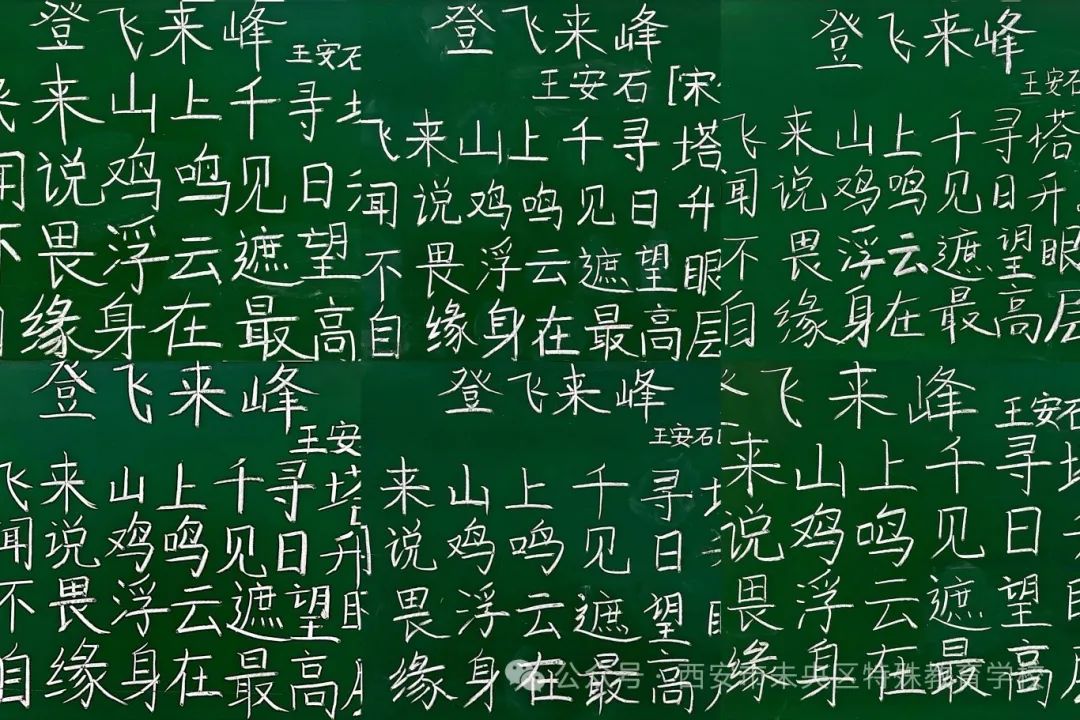 登飞来峰
王安石
来山上千寻
闻说鸡鸣见日
不畏浮云遮望
自缘身在最高
登飞来峰
王安石[宋
飞来山上千寻塔
闻说鸡鸣见日升
不畏浮云遮望眼
自缘身在最高层
登飞来峰
王安石
飞来山上千寻塔
闻说鸡鸣见日升
不畏浮云遮望眼
自缘身在最高层
登飞来峰
王安
飞来山上千寻塔
闻说鸡鸣见日升
不畏浮云遮望
自缘身在最高
登飞来峰
王安石
来山上千寻
说鸡鸣见日
畏浮云遮望
缘身在最高
飞来峰
王安石
来山上千寻
说鸡鸣见日
畏浮云遮望
缘身在最高
公众号·西安市未央区特殊教育学校